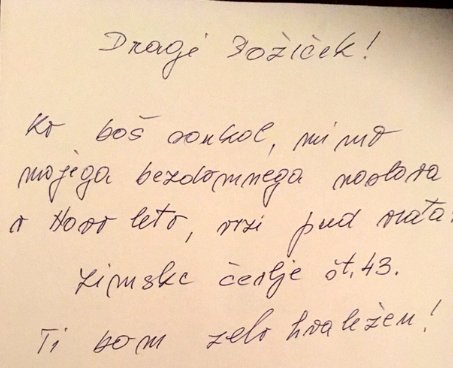 Dragi Božiček!
Ko boš sankal, mimo
mojega bezdomnega naslova
v Novo leto, vrzi pred vrata
zimske čevlje št. 43.
Ti bom zelo hvaležen!